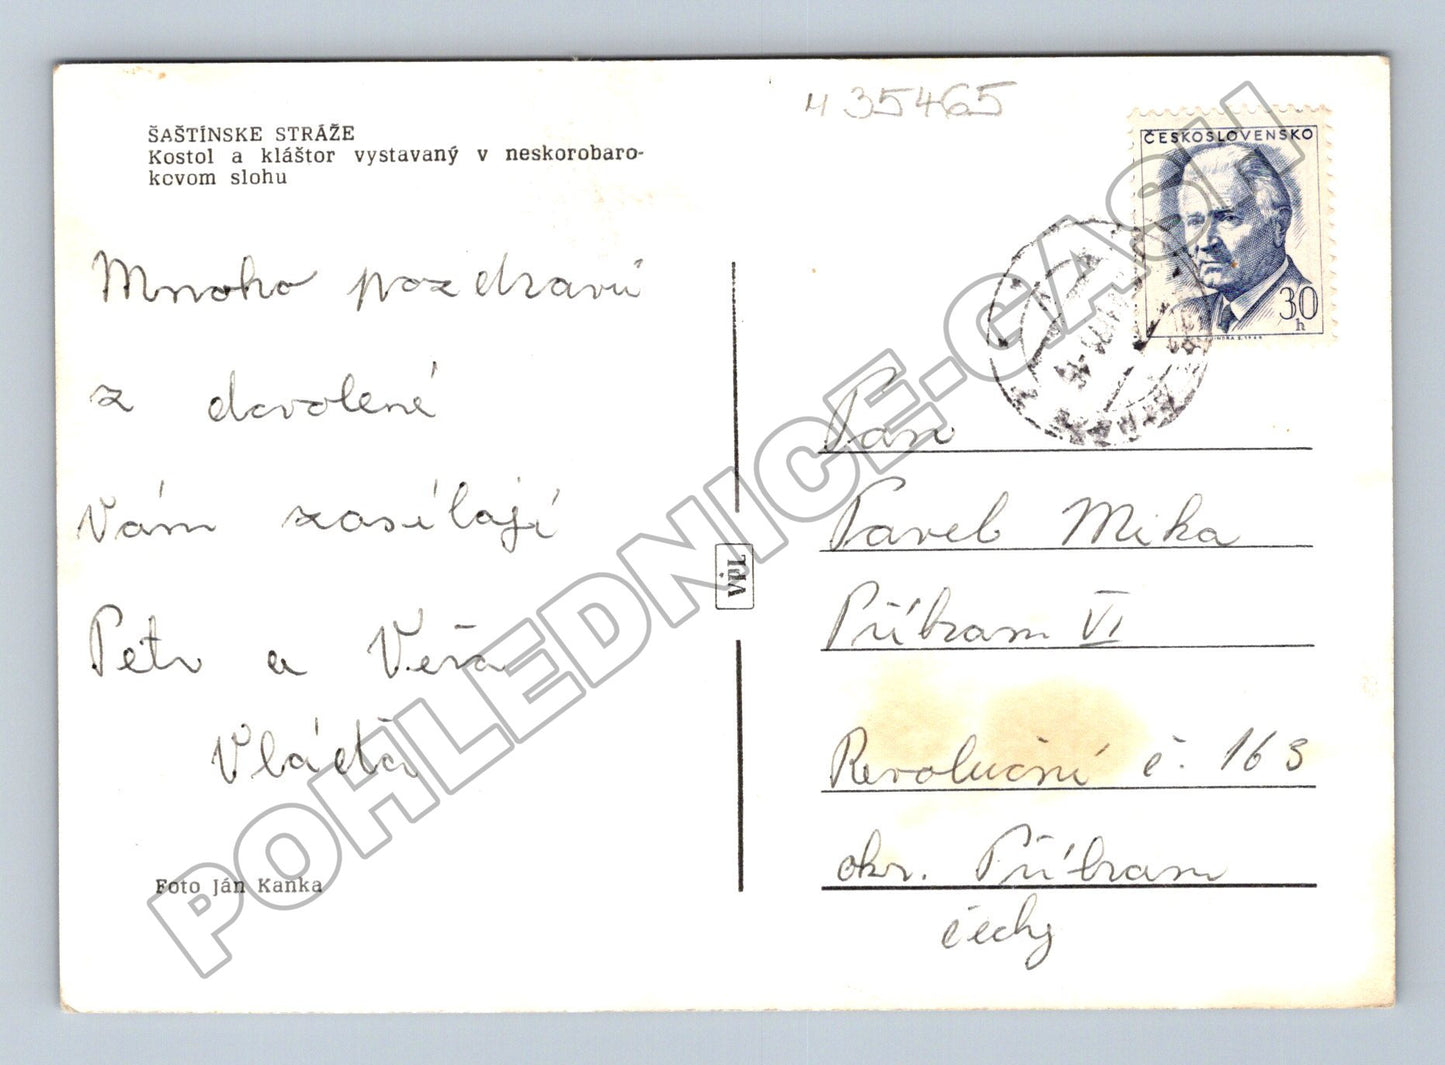 435465
ŠAŠTÍNSKE STRÁŽE
Kostol a kláštor vystavaný v neskorobaro-
kcvom slohu
ČESKOSLOVENSKO
30
h
Mnoho pozdravů
z dovolené
Vám zasílají
Petr a Věra
Vláďa
Foto Ján Kanka
VPL
Pan
Pavel Mika
Příbram VI
Revoluční č. 163
okr. Příbram
čechy
POHLEDNICE-GASH